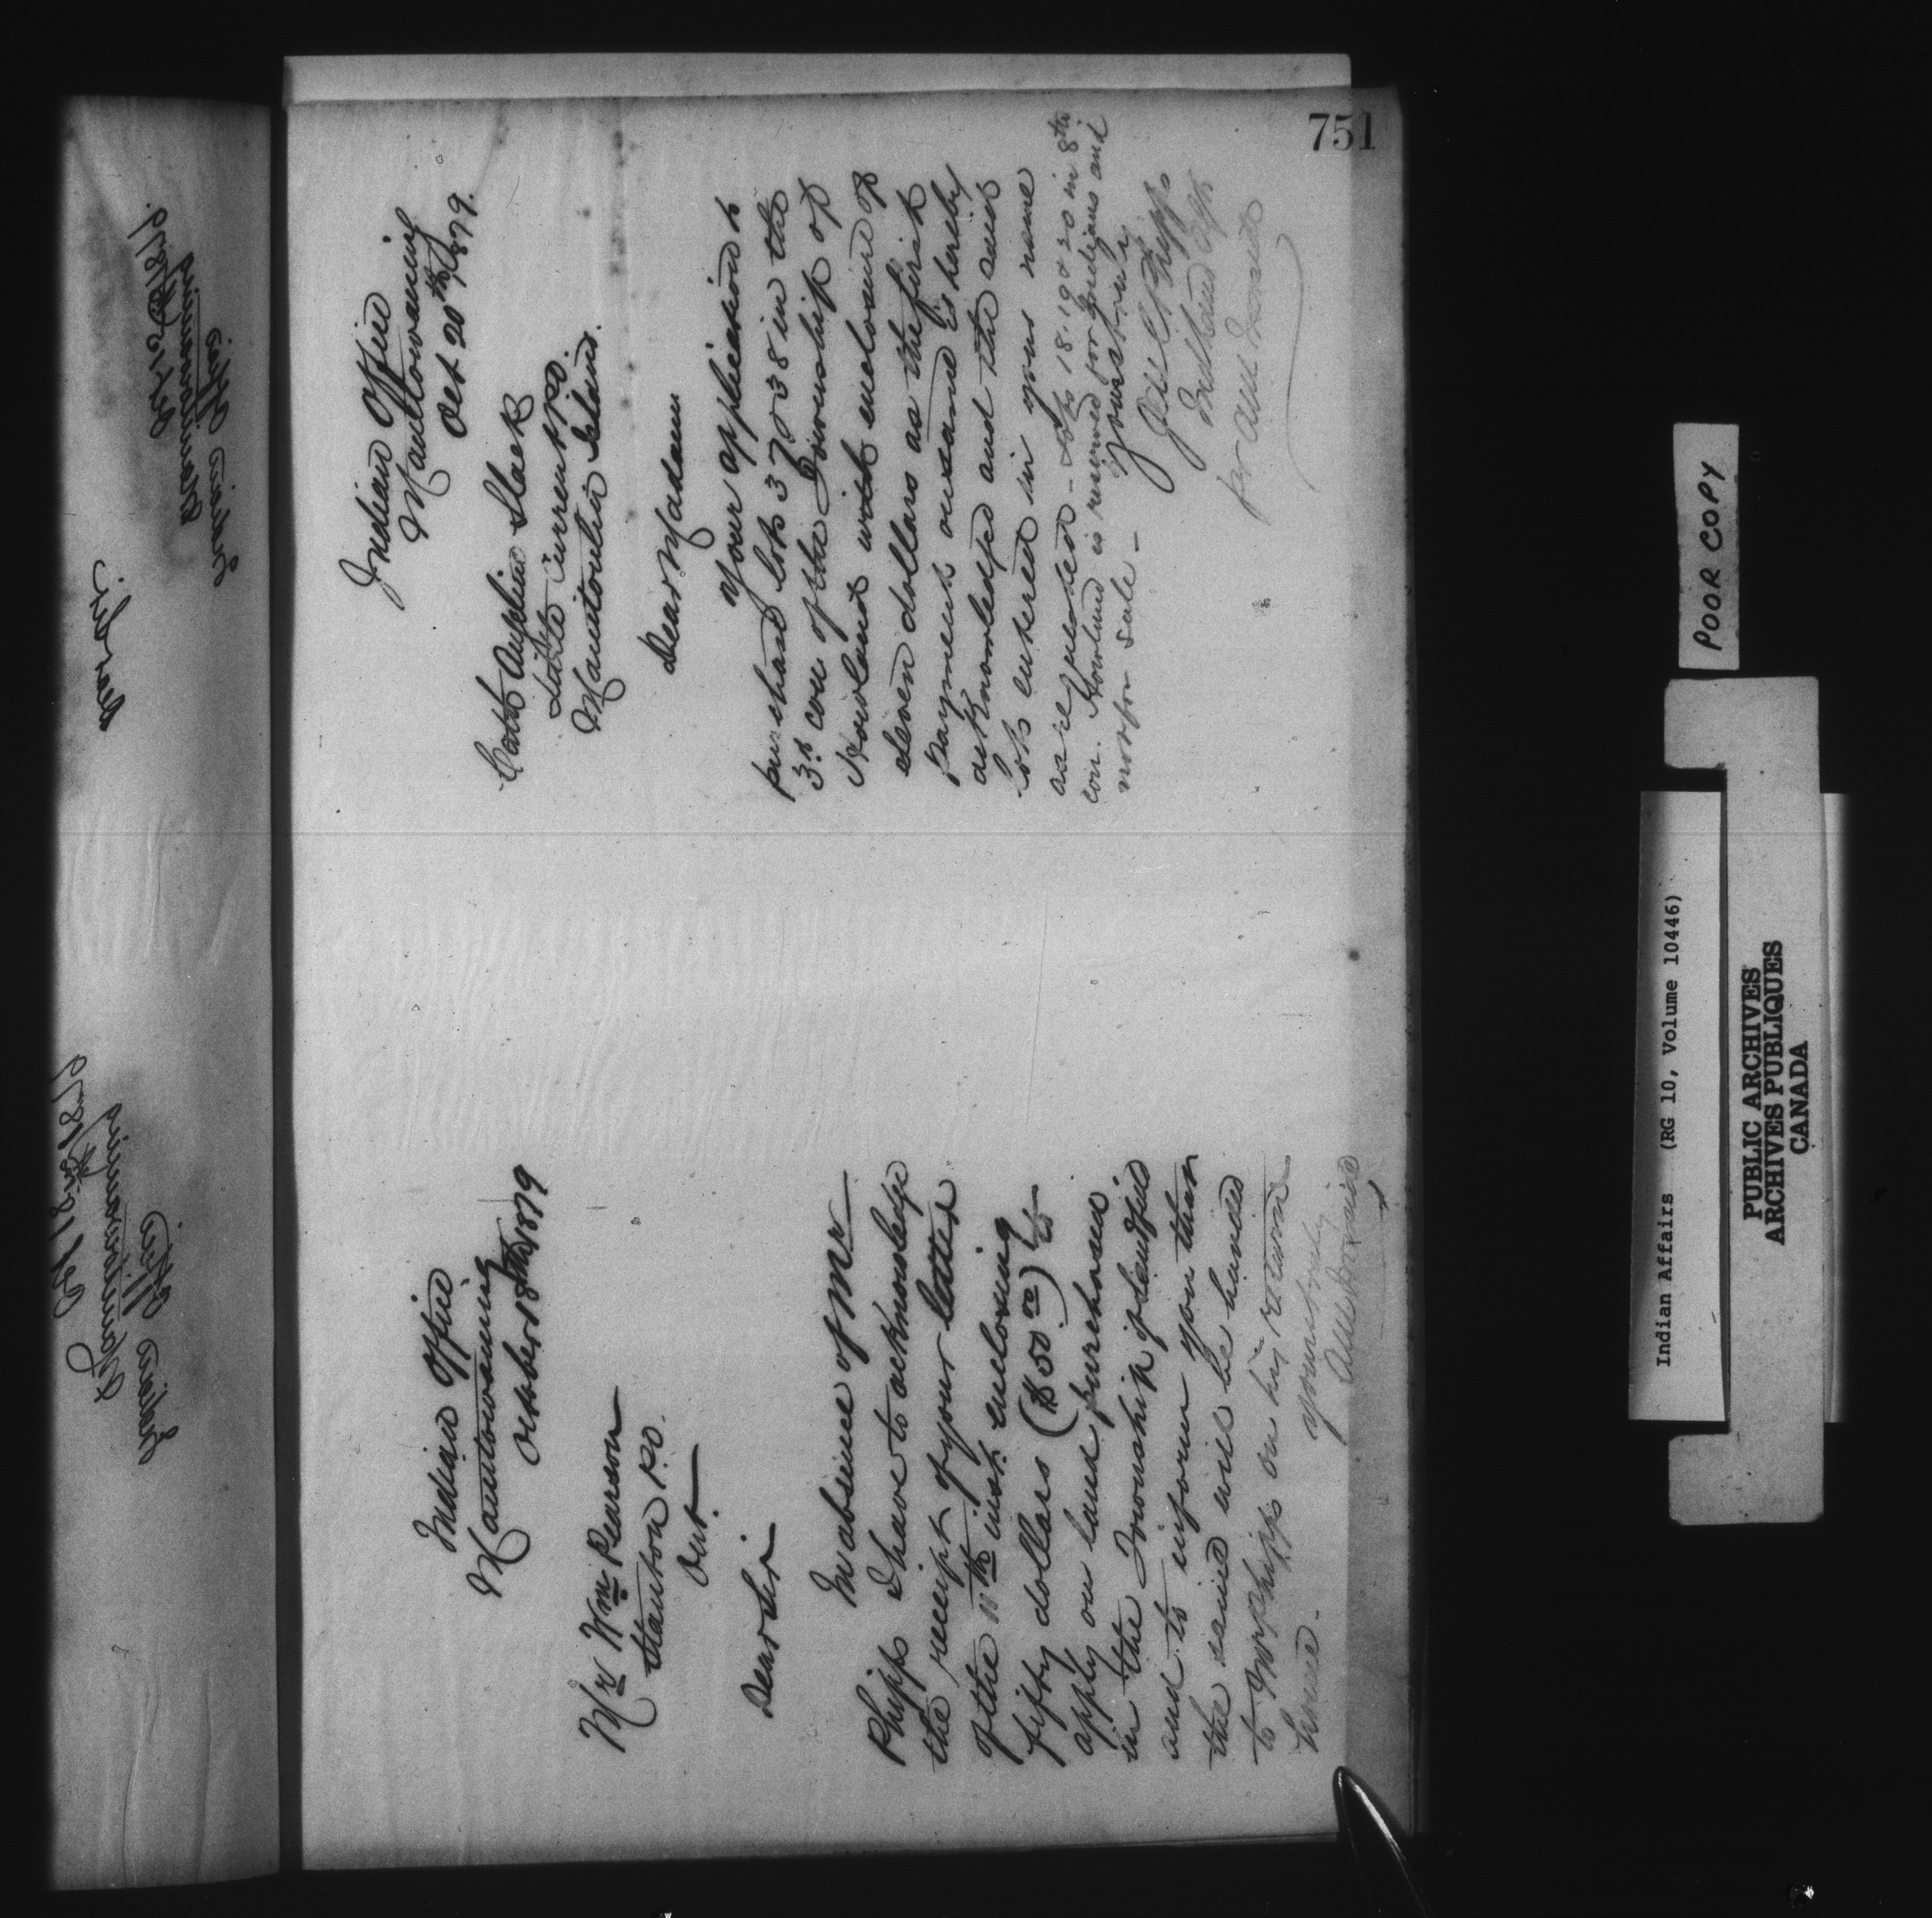 751
Indian Office
Manitowaning
October 18th 1879
Mr Wm Pearson
Stanton P.O.
Ont.
Dear Sir
In absence of Mr
Phipps I have to acknowledge
the receipt of your letter
of the 11th inst. enclosing
fifty dollars ($50.00) to
apply on land purchased
in the Township of Sandfield
and to inform you that
the same will be handed
to Mr Phipps on his return
home.
Yours truly
Indian Office
Manitowaning
Oct 20th 1879.
Slack
Little Current P.O.
Manitoulin Island.
Dear Madam
Your application to
purchase lots 37 & 38 in the
3d con of the Township of
Howland with enclosure of
eleven dollars as the first
payment on same is hereby
acknowledged and the said
lots entered in your name
as requested - Lots 18.19 & 20 in 8th
con. Howland is reserved for Indians and
not for sale -
Yours truly
Jas C Phipps
Ind Land Agt
per
Indian Office
Manitowaning
Oct 18th 1879
Indian Office
Manitowaning
1879.
Dear Sir
POOR COPY
Indian Affairs (RG 10, Volume 10446)
PUBLIC ARCHIVES
ARCHIVES PUBLIQUES
CANADA